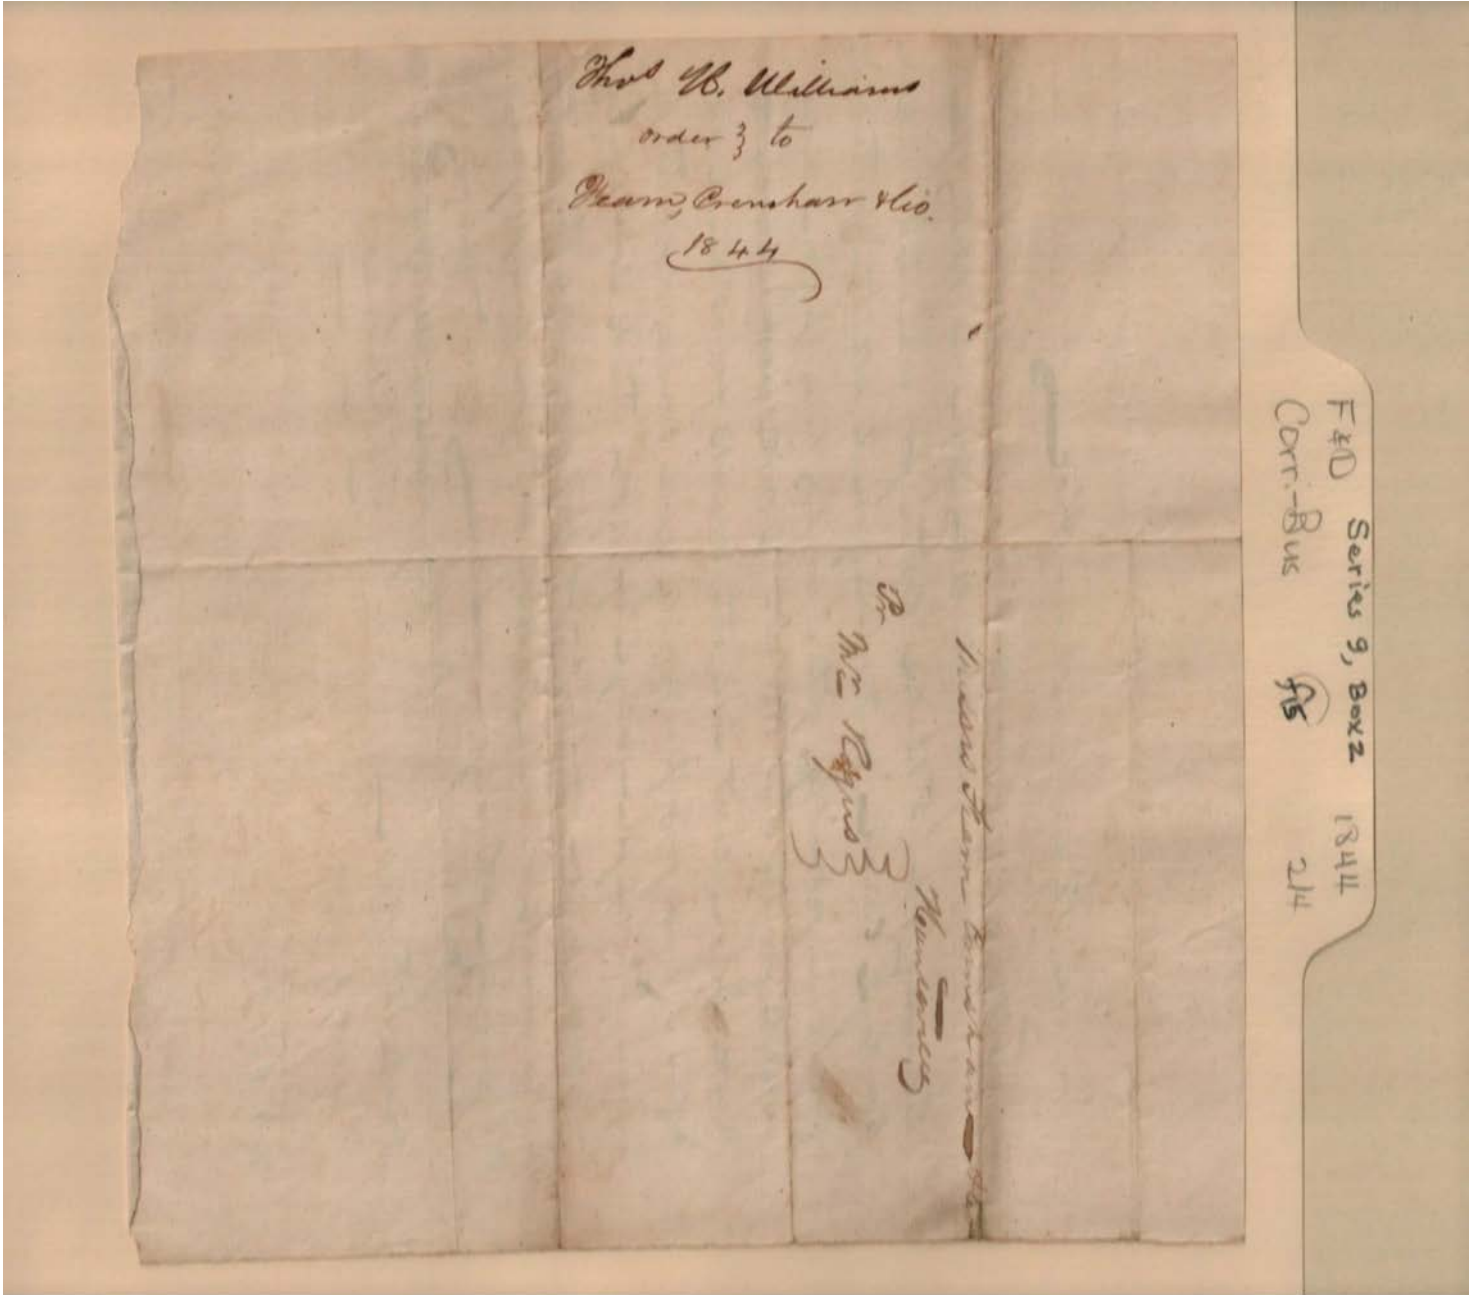 Thos H. Williams
order } to
Fearn, Crenshaw & Co.
1844
Messrs Fearn Crenshaw & Co
Huntsville
Pr
Mr
F&D Series 9, Box 2 1844
Corri.-Bus f15 2/4